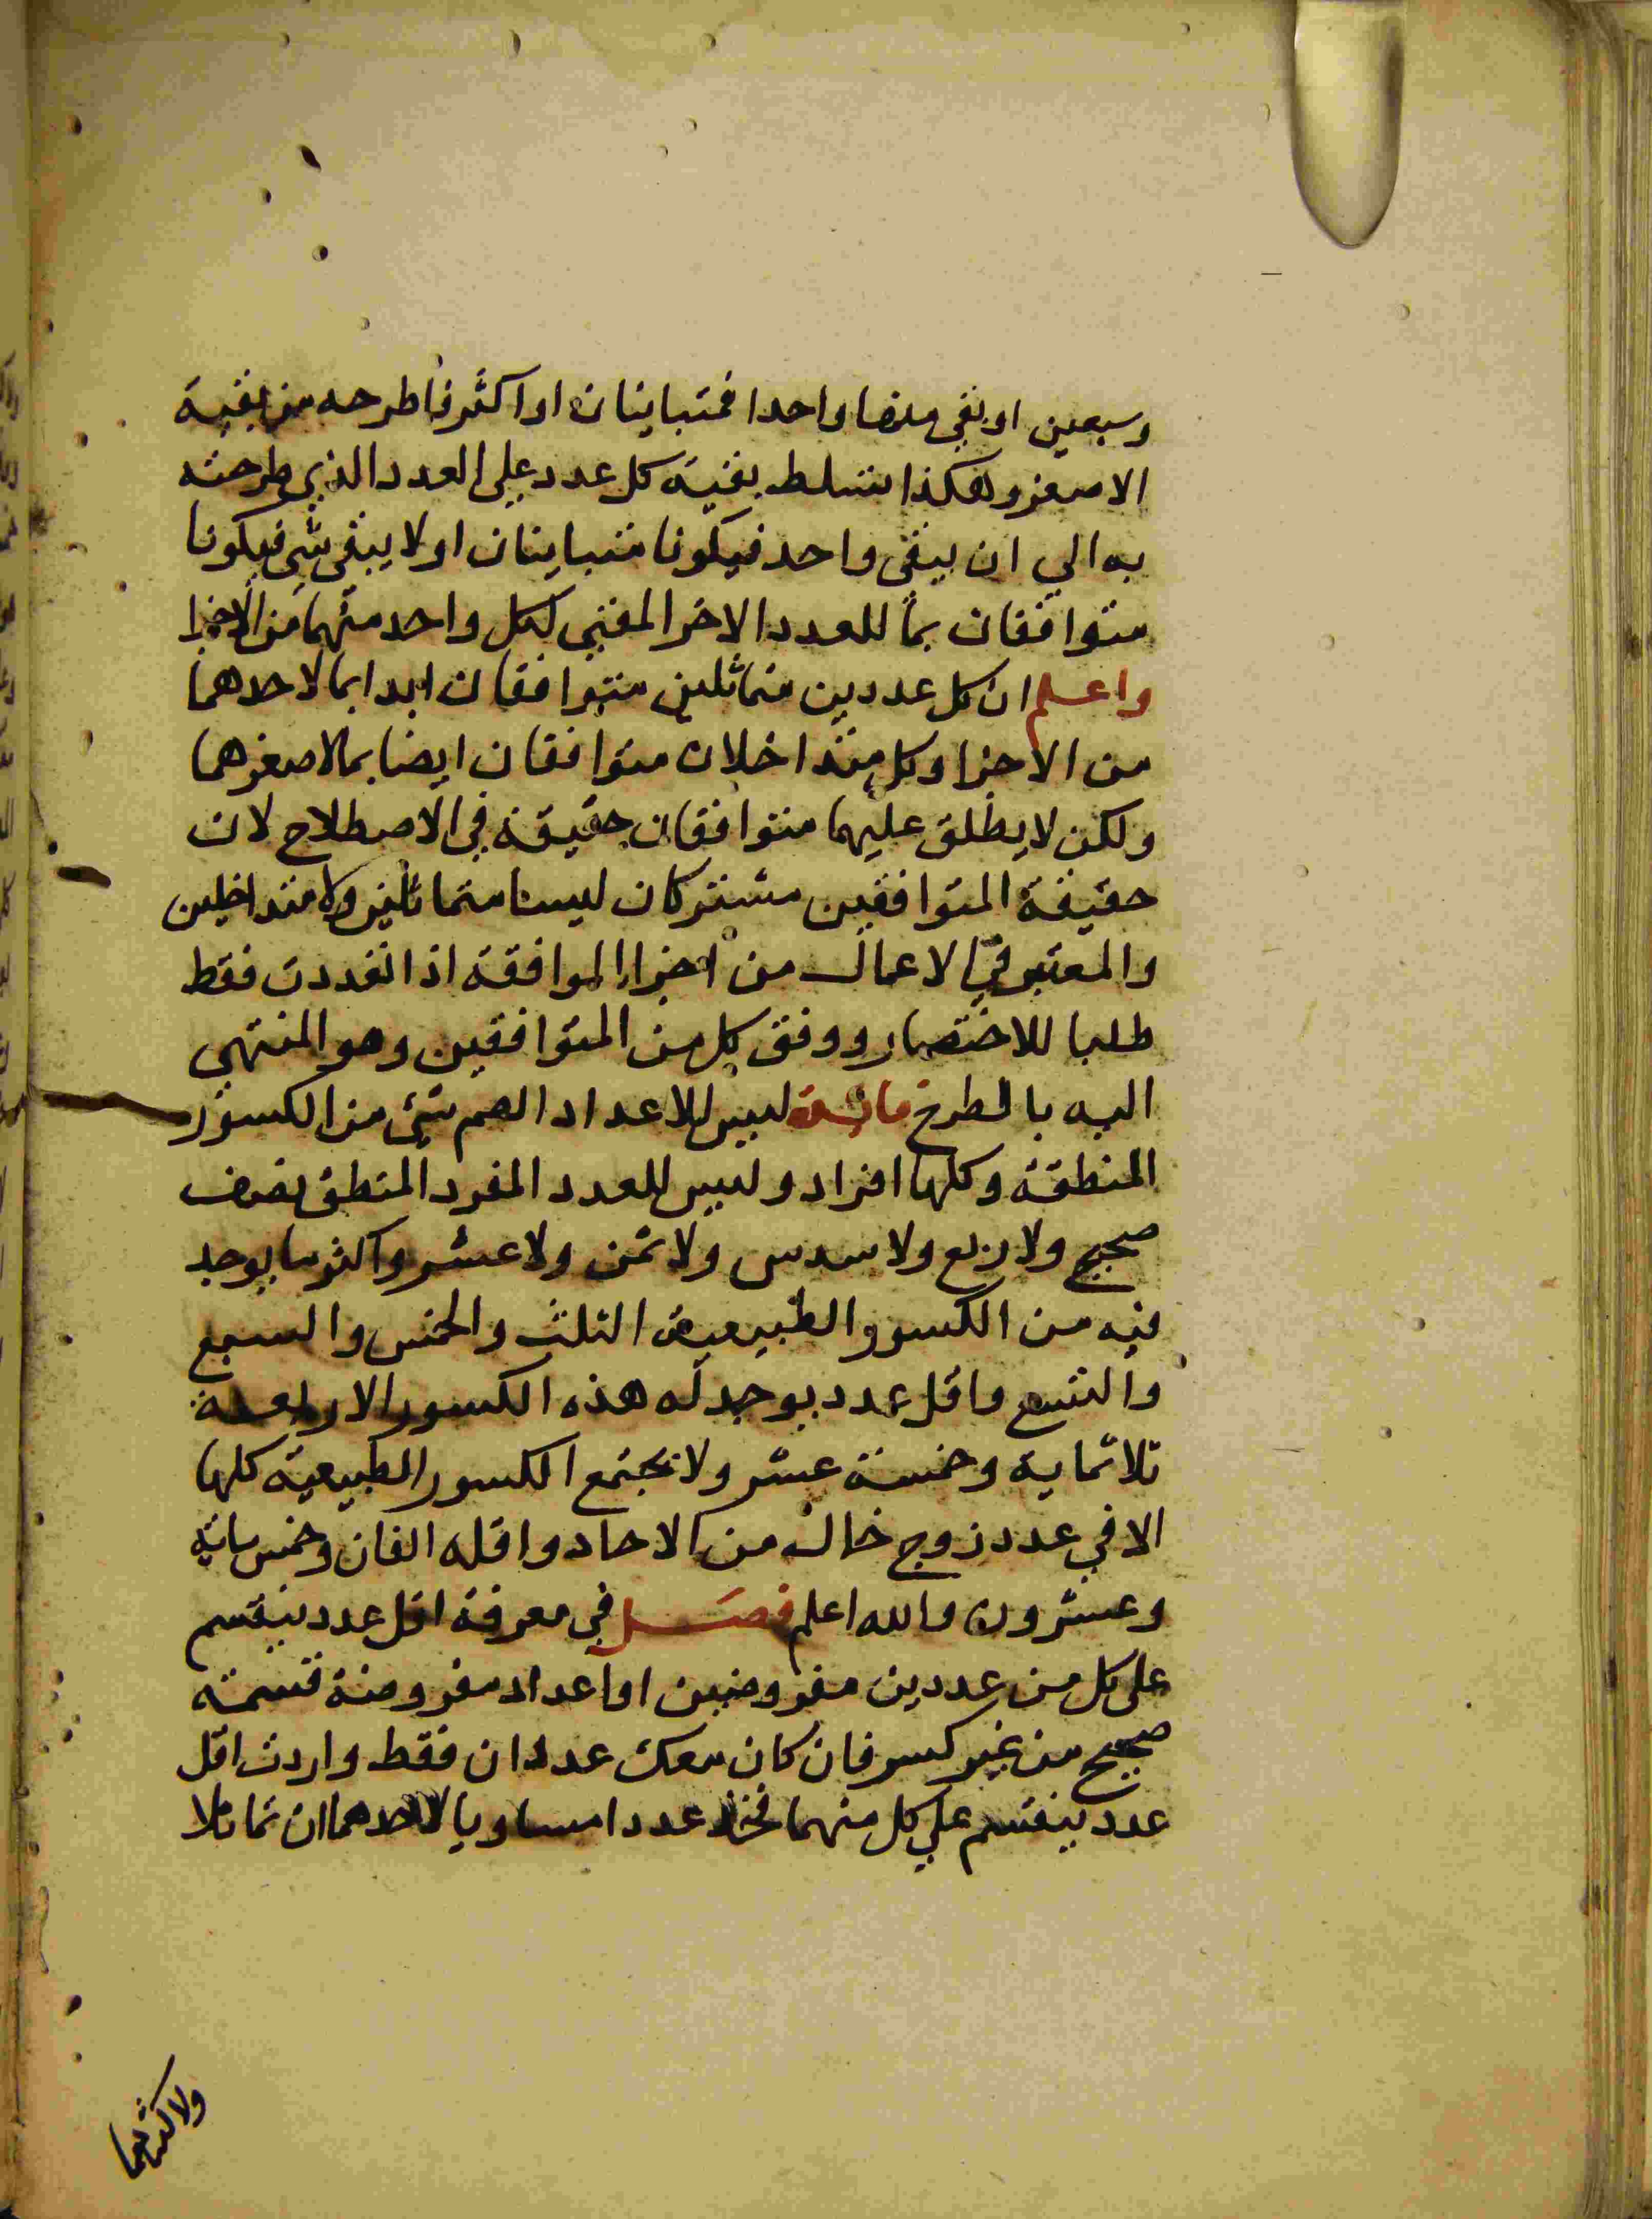 وسبعين او بقي منها واحدا فمتباينان او اكثر فاطرحه من بقية
الاصغر وهكذا تسلط بقية كل عدد علي العدد الذي طرحته
به الي ان يبقى واحد فيكونا متباينان او لا يبقى شي فيكونا
متوافقان بما للعدد الاخر المفني لكل واحد منهما من الاجزا
واعلم ان كل عددين متماثلين متوافقان ابدا بما لاحدهما
من الاجزا وكل متداخلان متوافقان ايضا بما لاصغرهما
ولكن لا يطلق عليهما متوافقان حقيقة في الاصطلاح لان
حقيقة المتوافقين مشتركان ليسا متماثلين ولا متداخلين
والمعتبر في الاعمال من اجزا الموافقة اذا تعددت فقط
طلبا للاختصار ووفق كل من المتوافقين وهو المنتهى
اليه بالطرح ليس للاعداد الصم شي من الكسور
المنطقة وكلها افراد وليس للعدد المفرد المنطق نصف
صحيح ولا ربع ولا سدس ولا ثمن ولا عشر واكثر ما يوجد
فيه من الكسور الطبيعية الثلث والخمس والسبع
والتسع واقل عدد يوجد له هذه الكسور الاربعة
ثلاثماية وخمسة عشر ولا تجتمع الكسور الطبيعية كلها
الا في عدد زوج خال من الاحاد واقله الفان وخمس ماية
وعشرون والله اعلم فصل في معرفة اقل عدد ينقسم
على كل من عددين مفروضين او اعداد مفروضة قسمة
صحيح من غير كسر فان كان معك عددان فقط واردت اقل
عدد ينقسم علي كل منهما فخذ عددا مساويا لاحدهما ان تماثلا
ولاكثرهما